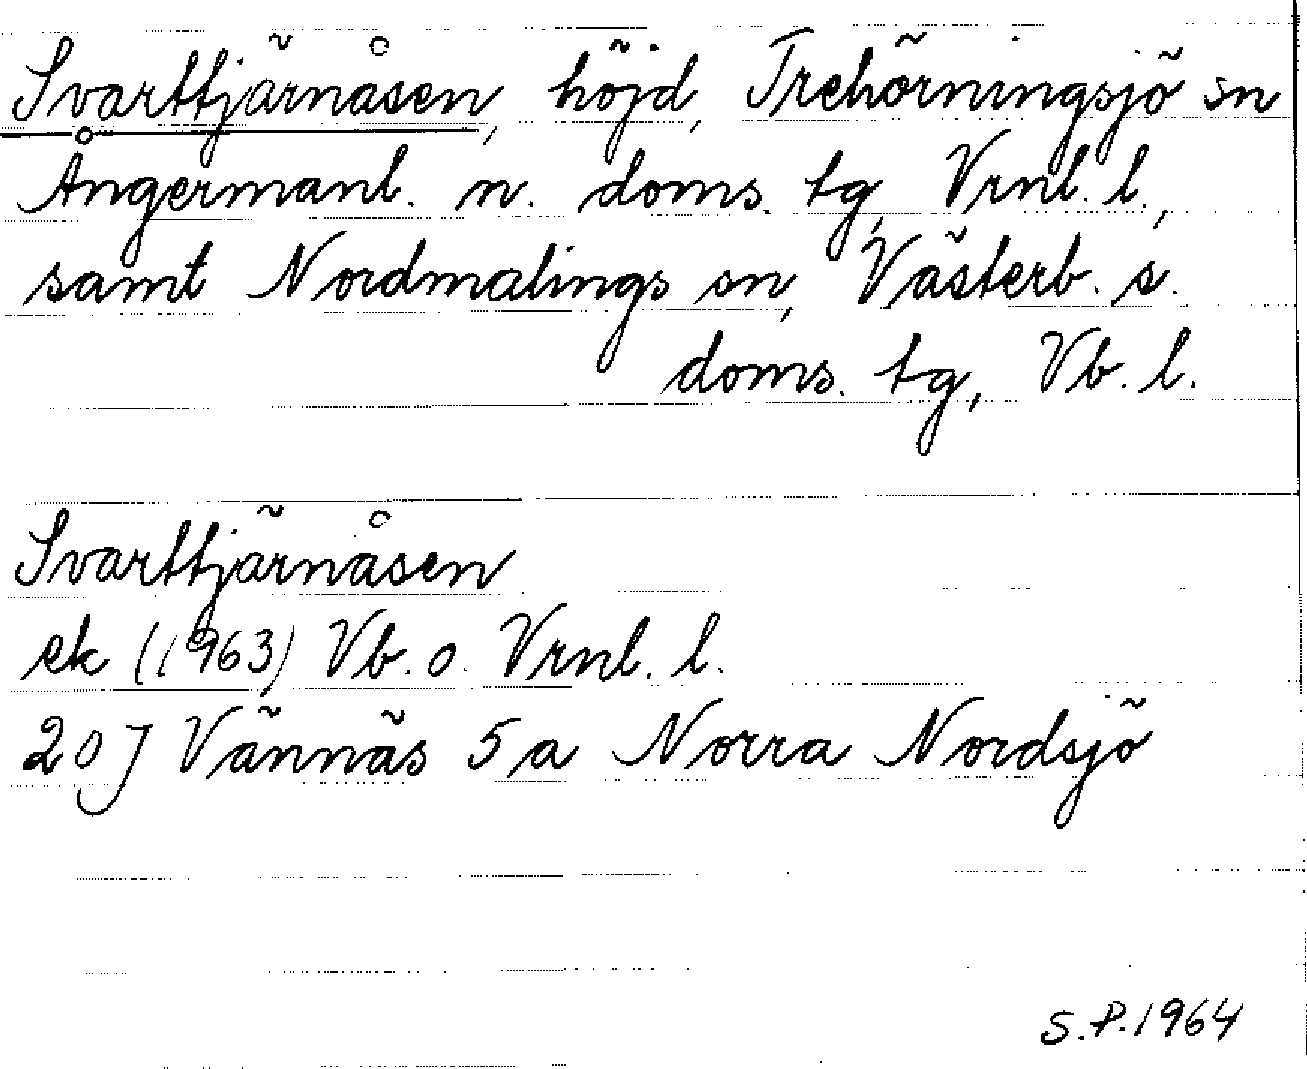 Svarttjärnåsen, höjd, Trehörningsjö sn
Ångermanl. n. doms. tg, Vrnl. l.,
samt Nordmalings sn, Västerb. s.
doms. tg, Vb. l.
Svarttjärnåsen
ek (1963) Vb. o. Vrnl. l.
20J Vännäs 5a Norra Nordsjö
S.P.1964